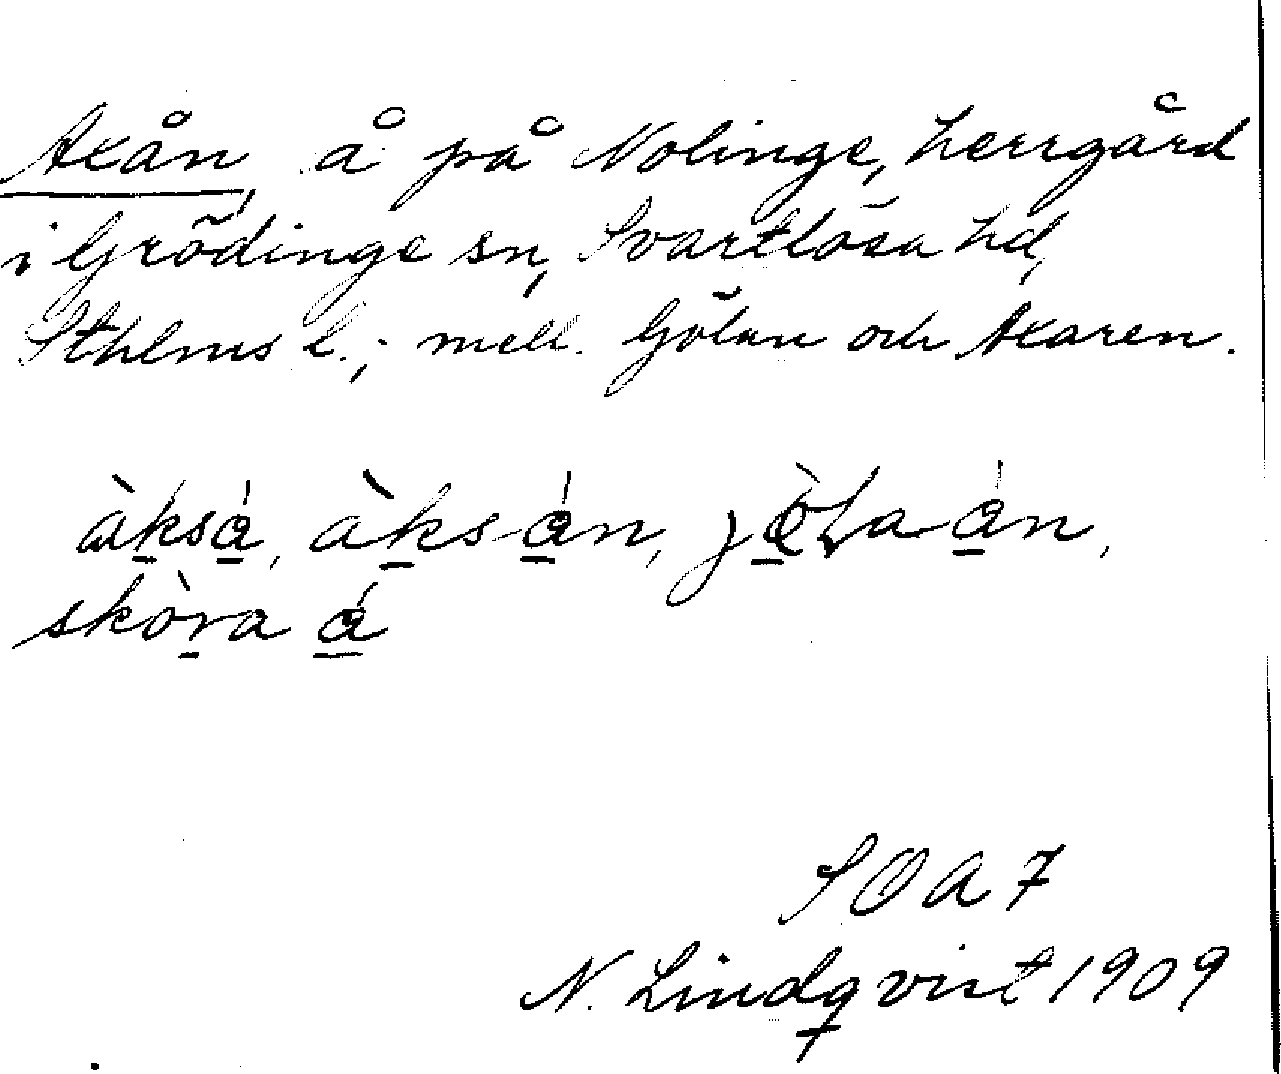 Axån, å på Nolinge, herrgård
i Grödinge sn, Svartlösa hd,
Sthlms l.; mell. Gölan och Axaren.
àksá, àksán, jö̀laán,
skòra á
SOA 7
N. Lindqvist 1909